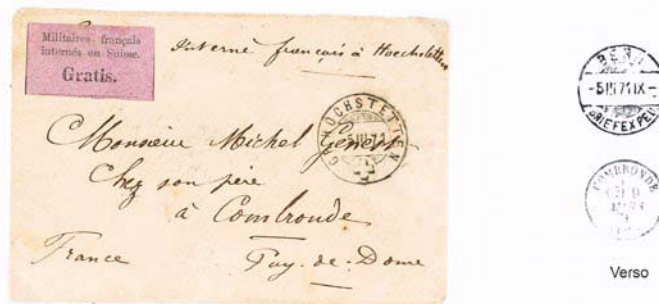 Militaires français
internés en Suisse.
Gratis.
Interné français à Hoechstetten
GR. HÖCHSTETTEN
5 III 71
Monsieur Michel Genest
Chez son père
à Combronde
France
Puy-de-Dome
BERN
-5 III 71 IX-
BRIEFEXPED
COMBRONDE
MARS
Verso